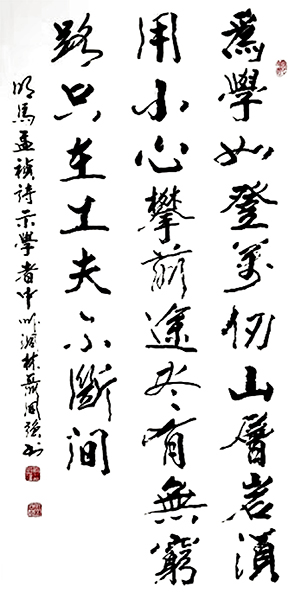 為學如登萬仞山層岩須
用小心攀前途尽有無窮
路只在工夫不斷間
明馬孟禎詩示學者中